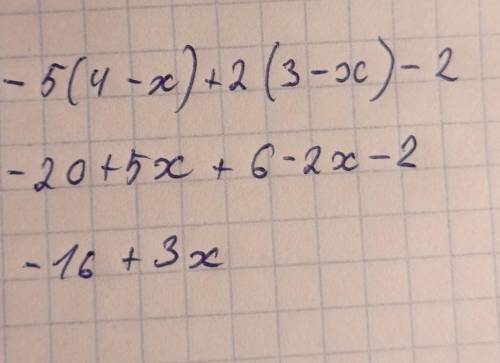 -5(4-x)+2(3-x)-2
-20+5x+6-2x-2
-16+3x